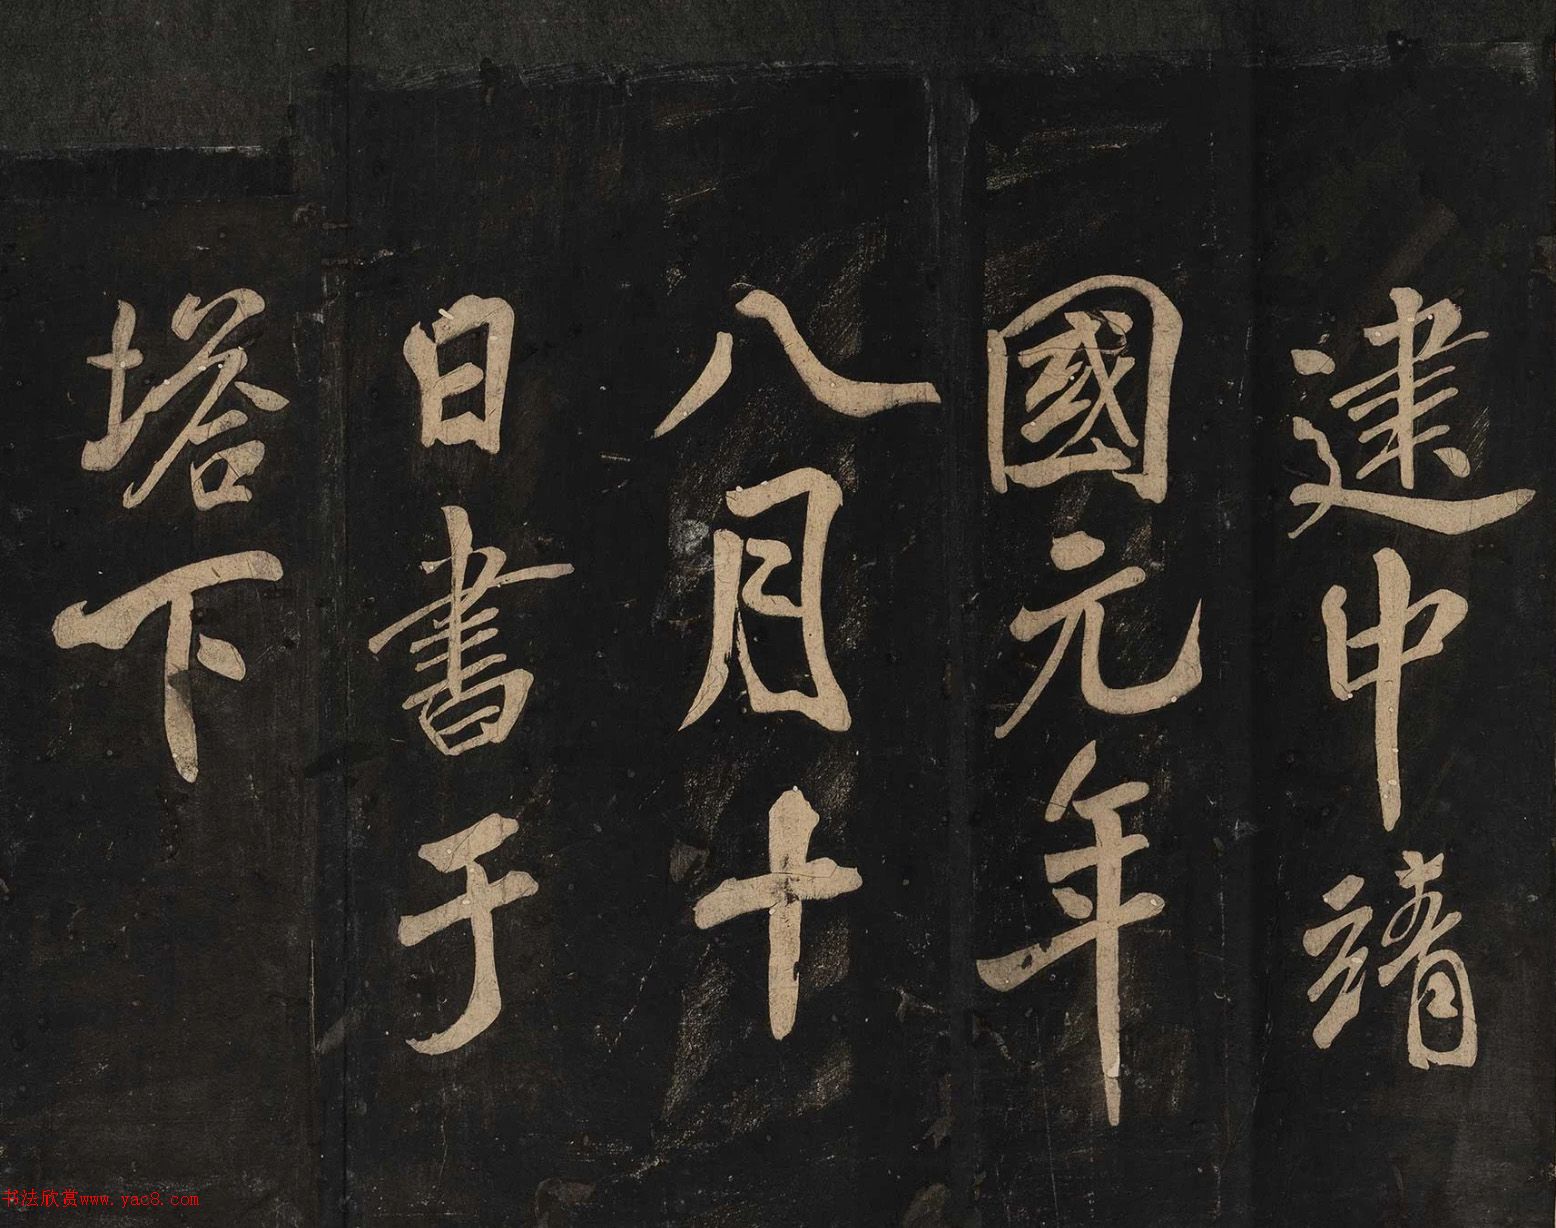 建中靖
國元年
八月十
日書于
塔下
书法欣赏www.yac8.com